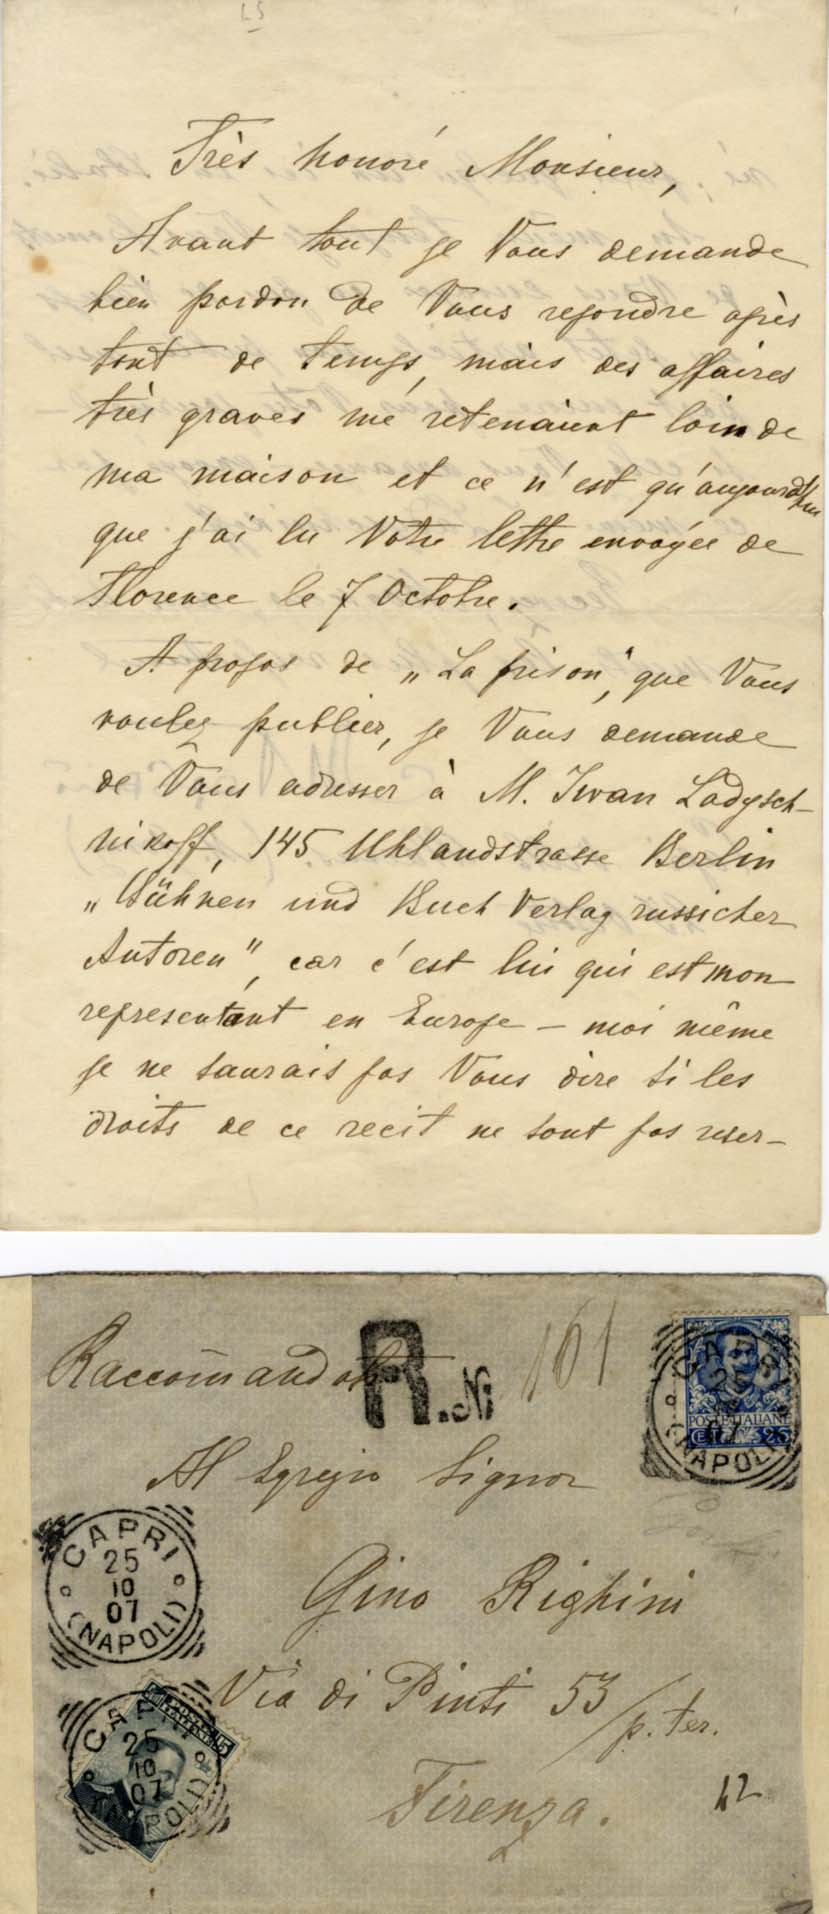 Très honoré Monsieur,
Avant tout je Vous demande
bien pardon de Vous repondre après
tout de temps, mais des affaires
très graves me retenaient loin de
ma maison et ce n'est qu'aujourd'hui
que j'ai lu Votre lettre envoyée de
Florence le 7 Octobre.
A propos de „La prison", que Vous
voulez publier, je Vous demande
de Vous adresser à M. Iwan Ladysch-
nikoff, 145 Uhlandstrasse Berlin
„Bühnen und Buch Verlag russicher
Autoren", car c'est lui qui est mon
representant en Europe – moi même
je ne saurais pas Vous dire si les
droits de ce recit ne sont pas reser-
Raccomandata
R. N.
161
CAPRI
25
07
(NAPOLI)
POSTE ITALIANE
CENT. 25
Al Egregio Signor
CAPRI
25
10
07
(NAPOLI)
Gino Righini
Via di Pinti 53
/p. ter.
CAPRI
25
10
07
(NAPOLI)
15
Firenza.
42